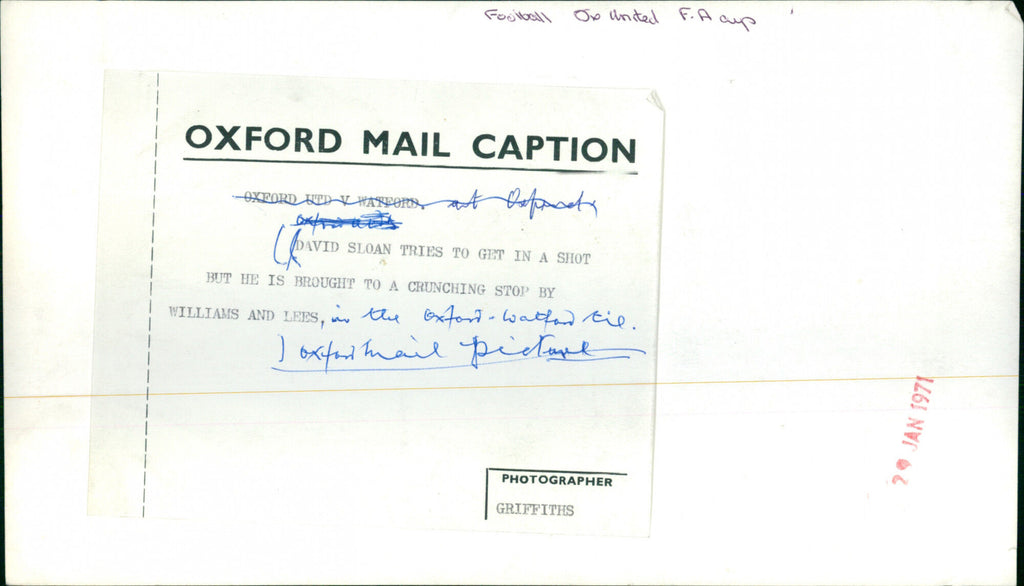 Football Ox United F.A cup
OXFORD MAIL CAPTION
OXFORD UTD V WATFORD. at
DAVID SLOAN TRIES TO GET IN A SHOT
BUT HE IS BROUGHT TO A CRUNCHING STOP BY
WILLIAMS AND LEES, in the Oxford-Watford tie.
Oxford Mail picture
29 JAN 1971
PHOTOGRAPHER
GRIFFITHS